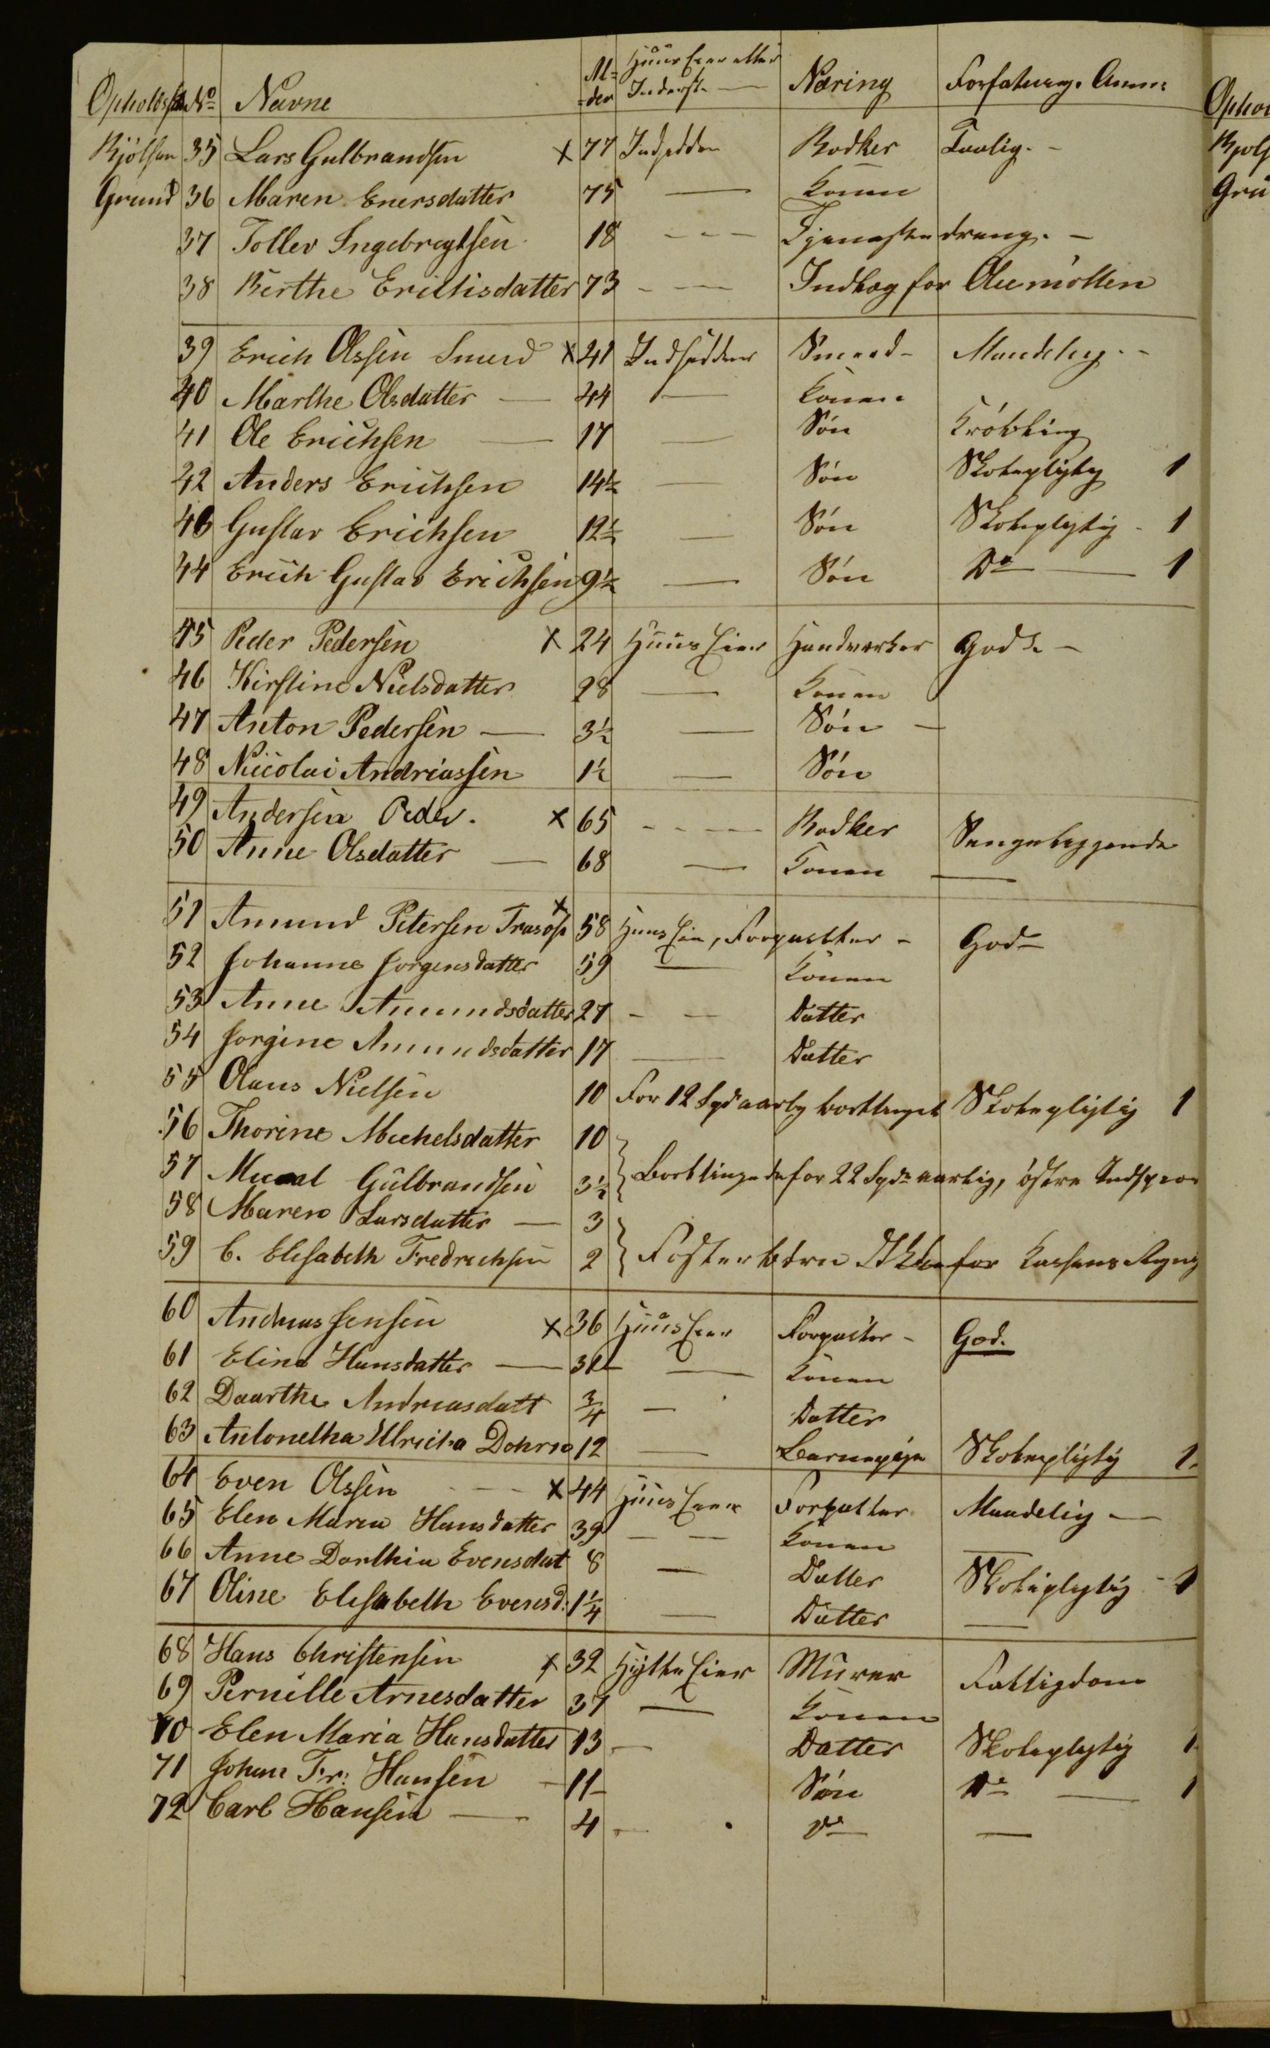 Opholtsst. No Navne Al=der Huus Eier eller Inderst. Næring Forfatning. Anm:
Bjölsen 35 Lars Gulbrandsen x 77 Indsidder Bødker Taalig. -
Grund 36 Maren Enersdatter 75 — Konen
37 Tollev Ingebregtsen 18 - - — Tjenestedreng. -
38 Berthe Erichsdatter 73 - — Indlag for
39 Erich Olssen Smed x 41 Indsidder Smed - Maadelig. -
40 Marthe Olsdatter — 44 — Konen
41 Ole Erichsen — 17 — Søn Kröbling
42 Anders Erichsen 14½ — Søn Skolepligtig 1
43 Gustav Erichsen 12½ — Søn Skolepligtig - 1
44 Erich Gustav Erichsen 9½ — Søn Do — 1
45 Peder Pedersen x 24 Huus Eier Handverker God -
46 Kirstine Nielsdatter 28 — Konen
47 Anton Pedersen — 3½ — Søn —
48 Nicolai Andriassen 1½ — Søn
49 Andersen Peder. x 65 - - — Bødker Sengeliggende
50 Anne Olsdatter — 68 — Konen —
51 Amund Petersen Trasop x 58 Huus Eier, Forpagter - God -
52 Johanne Jorgensdatter 59 — Konen
53 Anne Amundsdatter 27 - — Datter
54 Jorgine Amundsdatter 17 — Datter
55 Olaus Nielsen 10 For 12 Spd aarlig bortlinget Skolepligtig 1
56 Thorine Michelsdatter 10
57 Gulbrandsen 3½ } Bortlingede for 22 Spd aarlig, östre
58 Maren Larsdatter — 3
59 C. Elisabeth Fredrichsen 2 } Fosterbörn for Kassens Regng
60 Andreas Jensen x 36 Huus Eier Forpagter - God.
61 Eline Hansdatter — 31 — Konen
62 Daarthe Andreasdatt ¾ — Datter
63 Antonetha Ulricha Dohrn 12 — Barnepige Skolepligtig 1.
64 Even Olssen - - - x 44 Huus Eier Forpagter Maadelig —
65 Elen Maria Hansdatter 39 - — Konen —
66 Anne Dorthia Evensdat 8 — Datter Skolepligtig - 1
67 Oline Elisabeth Evensd: 1¼ — Datter —
68 Hans Christensen x 32 Hytte Eier Murer Fattigdom
69 Pernille Arnesdatter 37 — Konen
70 Elen Maria Hansdatter 13 — Datter Skolepligtig 1
71 Johan Fr: Hansen - 11 - Søn Do — 1
72 Carl Hansen — 4 - Do —